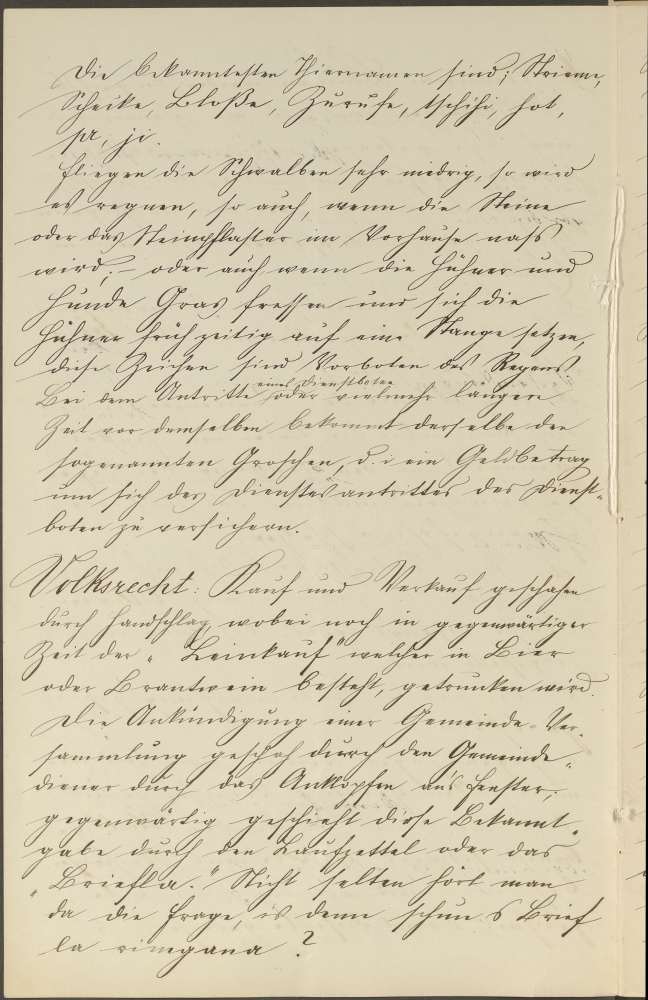 Die bekanntesten Thiernamen sind; Strieme,
Scheike, Bloße, Zurufe, tschihi, hot,
pr, ji.
Fliegen die Schwalben sehr niedrig, so wird
es regnen, so auch, wenn die Steine
oder das Steinpflaster im Vorhause naß
wird; – oder auch wenn die Hühner und
Hunde Gras fressen und sich die
Hühner früh zeitig auf eine Stange setzen,
diese Zeichen sind Vorboten des Regens.
Bei dem Antritte eines Dienstboten oder vielmehr längere
Zeit vor demselben bekommt derselbe den
sogenannten Groschen, d. i. ein Geldbetrag
um sich des Dienstesantrittes des Dienst-
boten zu versichern.
Volksrecht: Kauf und Verkauf geschahen
durch Handschlag, wobei noch in gegenwärtiger
Zeit der „Leinkauf" welcher in Bier
oder Brantwein besteht, getrunken wird.
Die Ankündigung einer Gemeinde-Ver-
sammlung geschah durch den Gemeinde-
diener durch das Anklopfen an's Fenster;
gegenwärtig geschieht diese Bekannt-
gabe durch den Laufzettel oder das
„Briefla." Nicht selten hört man
da die Frage, is denn schun s Brief
la rimgana?